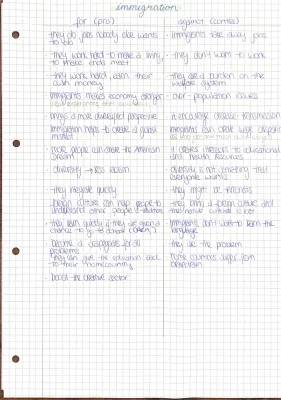 immigration
for (pro)
against (contra)
- they do jobs nobody else wants to do
- immigrants take away jobs
- they work hard to make a living, to make ends meet
- they don't want to work
- they work hard, earn their own money
- they are a burden on the welfare system
- immigrants makes economy stronger
- over-population issues
- brings a more diversified perspective
- it encourage disease transmission
- immigration helps to create a global market
- immigrants can create wage disparities
- more people can create the American Dream
- it creates threats to educational and health resources
- diversity → less racism
- diversity is not something that everyone wants
- they integrate quickly
- they might be terrorists
- foreign culture can help people to understand other people & cultures
- they bring a foreign culture and the native culture is lost
- they learn quickly if they are given a chance to go to school
- immigrants don't want to learn the language
- become a scapegoats for all problems
- they are the problem
- they can give the education back to their homecountry
- home countries suffer from braindrain
- boost the creative sector